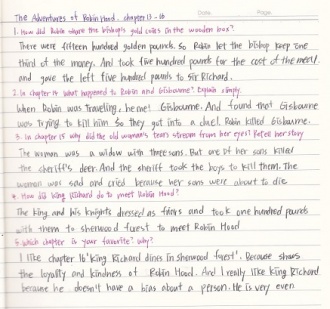 The Adventures of Robin Hood. chapter 13 - 16
Date. Page.
1. How did Robin share the bishop's gold coins in the wooden box?
There were fifteen hundred golden pounds. So Robin let the bishop keep one
third of the money. And took five hundred pounds for the cost of the meal.
and gave the left five hundred pounds to Sir Richard.
2. In chapter 14 what happened to Robin and Gisbourne? Explain simply.
When Robin was traveling, he met Gisbourne. And found that Gisbourne
was trying to kill him So they got into a duel. Robin killed Gisbourne.
3. In chapter 15 why did the old woman's tears stream from her eyes? Retell her story
The woman was a widow with three sons. But one of her sons killed
the cheriff's deer. And the sheriff took the boys to kill them. The
woman was sad and cried because her sons were about to die
4. How did King Richard do to meet Robin Hood?
The king and his knights dressed as friars and took one hundred pounds
with them to sherwood forest to meet Robin Hood
5. Which chapter is your favorite? why?
I like chapter 16 'king Richard dines in sherwood forest'. Because shows
the loyalty and kindness of Robin Hood. And I really like king Richard
because he doesn't have a bias about a person. He is very even